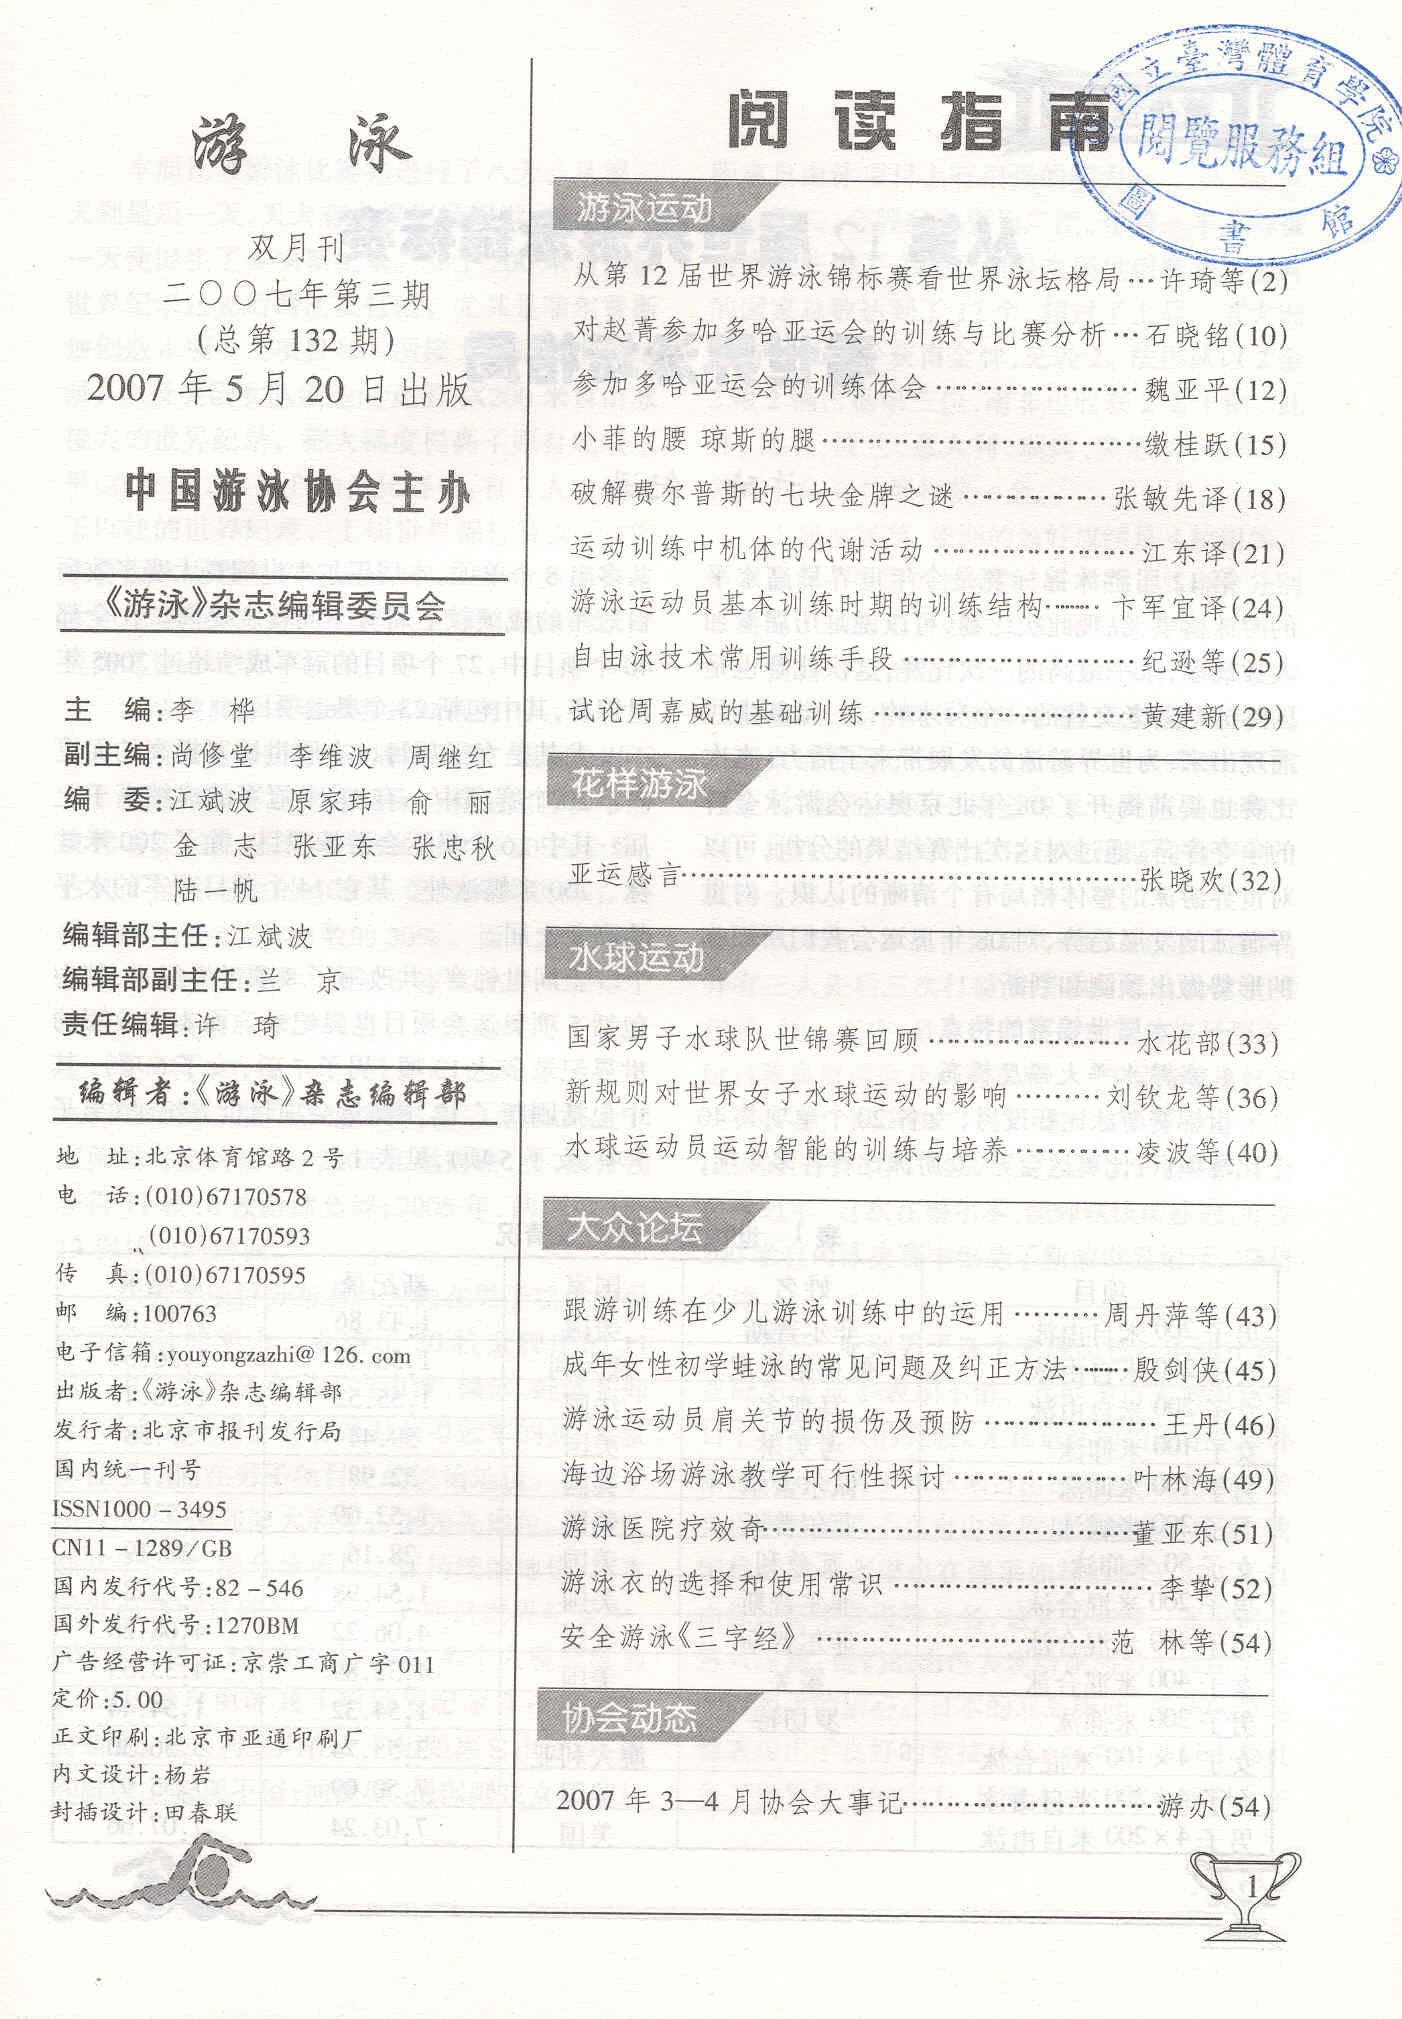 游 泳
双月刊
二〇〇七年第三期
(总第 132 期)
2007 年 5 月 20 日出版
中国游泳协会主办
《游泳》杂志编辑委员会
主 编:李 桦
副主编:尚修堂 李维波 周继红
编 委:江斌波 原家玮 俞 丽
金 志 张亚东 张忠秋
陆一帆
编辑部主任:江斌波
编辑部副主任:兰 京
责任编辑:许 琦
编辑者:《游泳》杂志编辑部
地 址:北京体育馆路 2 号
电 话:(010)67170578
(010)67170593
传 真:(010)67170595
邮 编:100763
电子信箱:youyongzazhi@126.com
出版者:《游泳》杂志编辑部
发行者:北京市报刊发行局
国内统一刊号
ISSN1000－3495
CN11－1289/GB
国内发行代号:82－546
国外发行代号:1270BM
广告经营许可证:京崇工商广字 011
定价:5.00
正文印刷:北京市亚通印刷厂
内文设计:杨岩
封插设计:田春联
阅读指南
國立臺灣體育學院
閱覽服務組
圖書館
游泳运动
从第 12 届世界游泳锦标赛看世界泳坛格局…许琦等(2)
对赵菁参加多哈亚运会的训练与比赛分析…石晓铭(10)
参加多哈亚运会的训练体会……………………魏亚平(12)
小菲的腰 琼斯的腿………………………………缴桂跃(15)
破解费尔普斯的七块金牌之谜………………张敏先译(18)
运动训练中机体的代谢活动……………………江东译(21)
游泳运动员基本训练时期的训练结构……卞军宜译(24)
自由泳技术常用训练手段………………………纪逊等(25)
试论周嘉威的基础训练…………………………黄建新(29)
花样游泳
亚运感言……………………………………………张晓欢(32)
水球运动
国家男子水球队世锦赛回顾……………………水花部(33)
新规则对世界女子水球运动的影响………刘钦龙等(36)
水球运动员运动智能的训练与培养…………凌波等(40)
大众论坛
跟游训练在少儿游泳训练中的运用………周丹萍等(43)
成年女性初学蛙泳的常见问题及纠正方法……殷剑侠(45)
游泳运动员肩关节的损伤及预防…………………王丹(46)
海边浴场游泳教学可行性探讨…………………叶林海(49)
游泳医院疗效奇……………………………………董亚东(51)
游泳衣的选择和使用常识…………………………李挚(52)
安全游泳《三字经》……………………………范 林等(54)
协会动态
2007 年 3—4 月协会大事记…………………………游办(54)
1